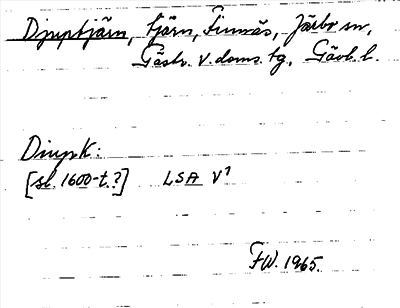 Djuptjärn, tjärn, Finnäs, Järbo sn,
Gästr. V. doms. tg, Gävb. l.
DiupK:
[sl. 1600-t.?] LSA V1
FW. 1965.